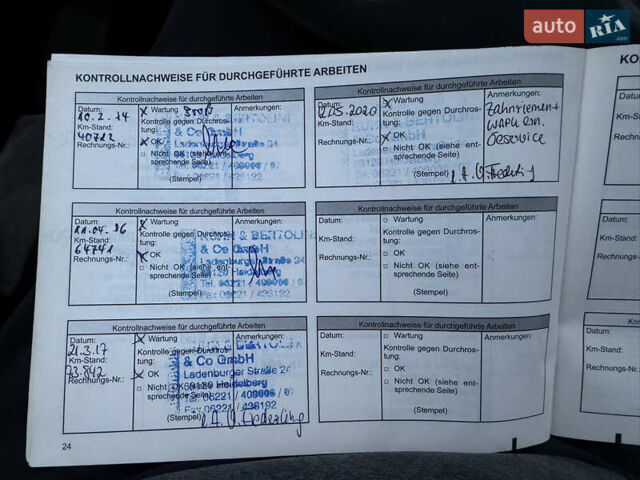 auto RIA.com
KONTROLLNACHWEISE FÜR DURCHGEFÜHRTE ARBEITEN
KO
Kontrollnachweise für durchgeführte Arbeiten
Datum:
10.2.14
Km-Stand:
40712
Rechnungs-Nr.:
X Wartung
Kontrolle gegen Durchros-
tung:
X OK
□ Nicht OK (siehe ent-
sprechende Seite)
(Stempel)
Anmerkungen:
& Co GmbH
Ladenburger Straße 24
Tel. 06221 / 409006 / 07
Fax 06221 / 436192
Kontrollnachweise für durchgeführte Arbeiten
Datum:
12.05.2020
Km-Stand:
Rechnungs-Nr.:
X Wartung
Kontrolle gegen Durchros-
tung:
X OK
□ Nicht OK (siehe ent-
sprechende Seite)
(Stempel)
Anmerkungen:
Zahnriemen +
Ölservice
Kontrollnachweise für durchgeführte Arbeiten
Datum:
11.04.16
Km-Stand:
64741
Rechnungs-Nr.:
X Wartung
Kontrolle gegen Durchros-
tung:
X OK
□ Nicht OK (siehe ent-
sprechende Seite)
(Stempel)
Anmerkungen:
& BERTOLINI
& Co GmbH
Ladenburger Straße 24
69120 Heidelberg
Tel. 06221 / 409006 / 07
Fax 06221 / 436192
Kontrollnachweise für durchgeführte Arbeiten
Datum:
Km-Stand:
Rechnungs-Nr.:
□ Wartung
Kontrolle gegen Durchros-
tung:
□ OK
□ Nicht OK (siehe ent-
sprechende Seite)
(Stempel)
Anmerkungen:
Kontrollnachweise für durchgeführte Arbeiten
Datum:
21.3.17
Km-Stand:
73.842
Rechnungs-Nr.:
X Wartung
Kontrolle gegen Durchros-
tung:
X OK
□ Nicht OK (siehe ent-
sprechende Seite)
(Stempel)
Anmerkungen:
& BERTOLINI
& Co GmbH
Ladenburger Straße 24
69120 Heidelberg
Tel. 06221 / 409006 / 07
Fax 06221 / 436192
Kontrollnachweise für durchgeführte Arbeiten
Datum:
Km-Stand:
Rechnungs-Nr.:
□ Wartung
Kontrolle gegen Durchros-
tung:
□ OK
□ Nicht OK (siehe ent-
sprechende Seite)
(Stempel)
Anmerkungen:
Datum:
Km-Stand:
Rechnungs
Datum:
Km-Stand:
Rechnungs-
Datum:
Km-Stand:
Rechnungs-N
24